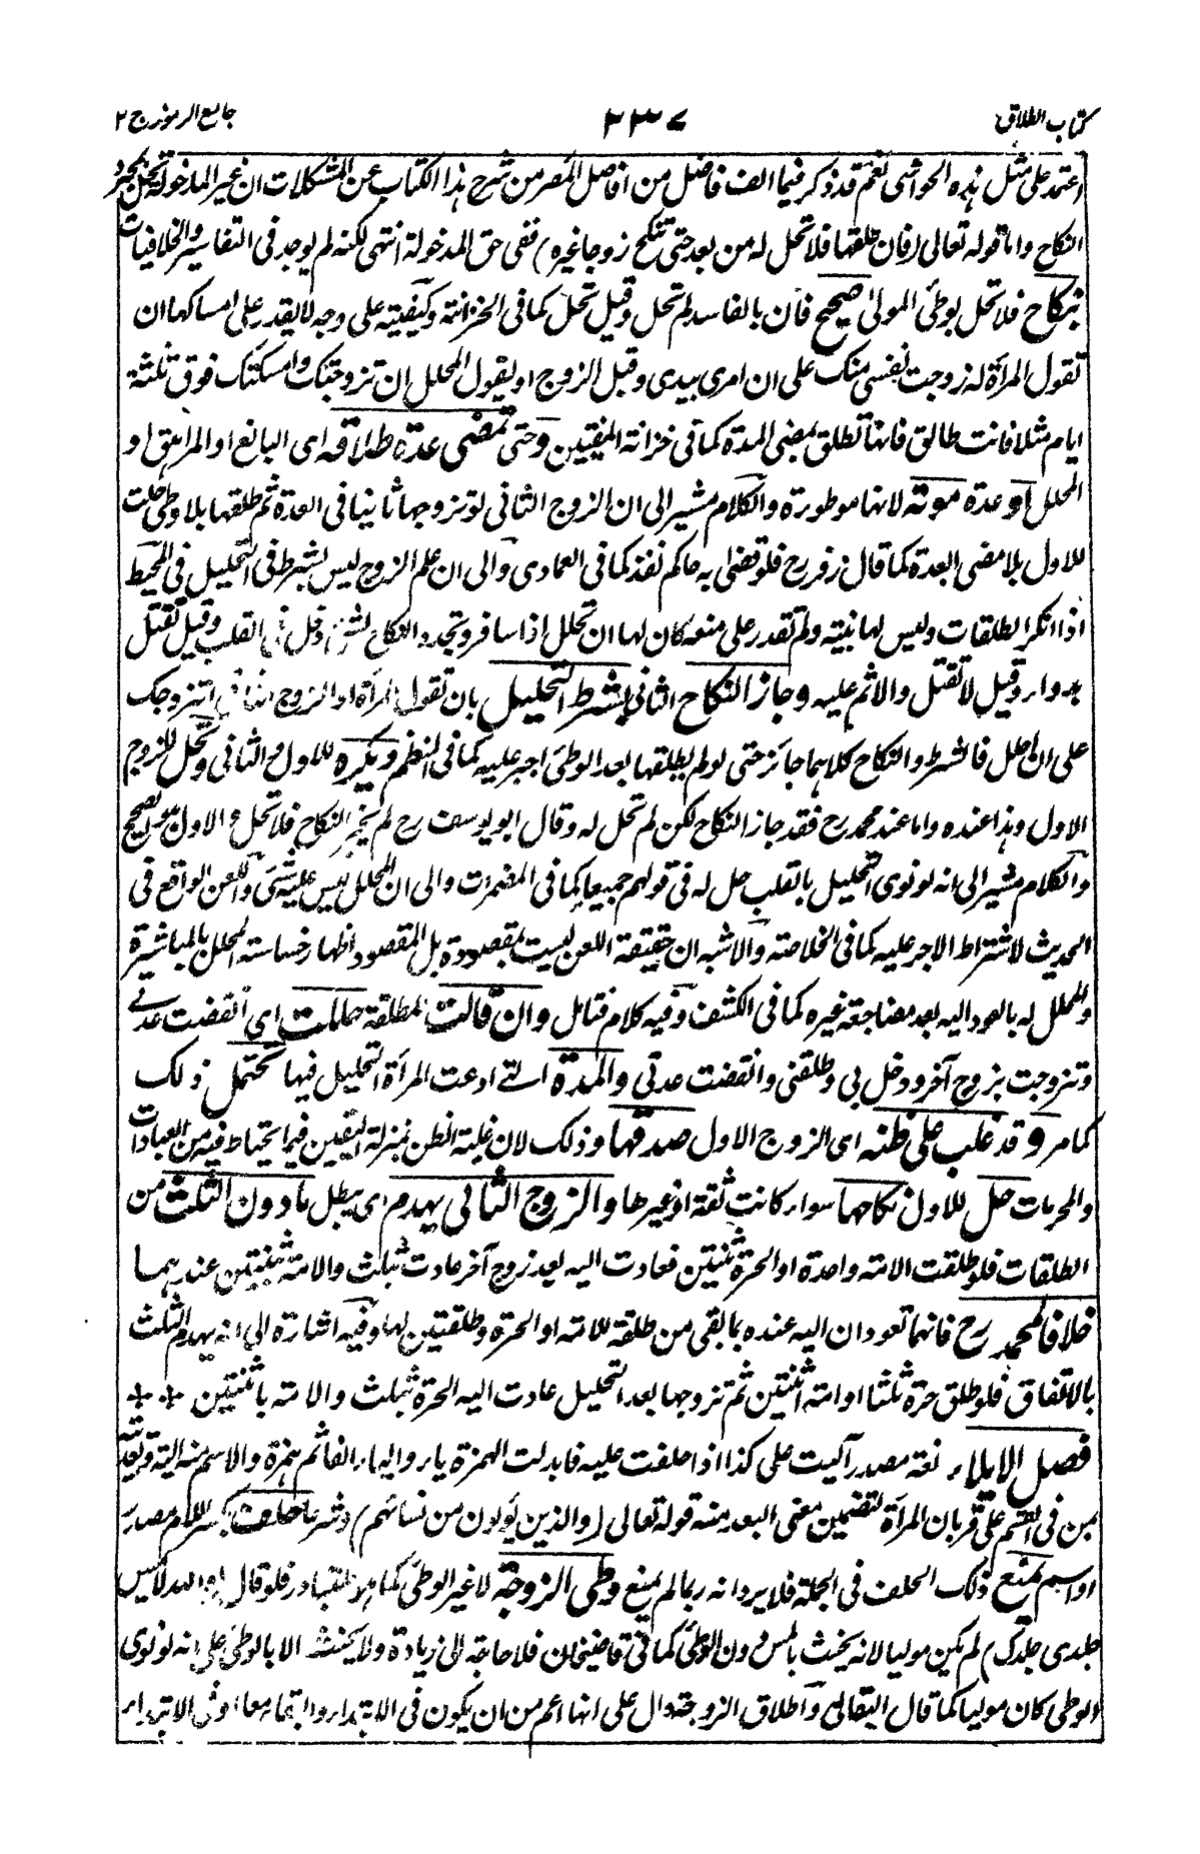 كتاب الطلاق ٣٣٧ جامع الرموز ج ٢
اعتمد على مثل هذه الحواشى نعم قد ذكر فيما الف فاضل من افاضل العصر من شرح هذا الكتاب عن المشكلات ان غير المدخولة تحل بمجرد
النكاح واما قوله تعالى (فان طلقها فلا تحل له من بعد حتى تنكح زوجا غيره) ففى حق المدخولة انتهى لكنه لم يوجد فى التفاسير والخلافيات
بنكاح فلا تحل بوطئ المولى صحيح فان بالفاسد لم تحل وقيل تحل كما فى الخزانة وكيفيته على وجه لا يقدر على امساكها ان
تقول المرأة له زوجت نفسى منك على ان امرى بيدى وقبل الزوج او يقول المحلل ان تزوجتك وامسكتك فوق ثلثة
ايام مثلا فانت طالق فانها تطلق بمضى المدة كما فى خزانة المفتيين وحتى تمضى عدة طلاقه اى البالغ او المراهق او
المحلل او عدة موته لانها موطورة والكلام مشير الى ان الزوج الثانى لو تزوجها ثانيا فى العدة ثم طلقها بلا وطئ حلت
للاول بلا مضى العدة كما قال زفر رح فلو قضى به حاكم نفذ كما فى العمادى والى ان علم الزوج ليس بشرط فى التحليل فى المحيط
اذا انكر الطلقات وليس لها بينته ولم تقدر على منعه كان لها ان تحلل اذا سافر وتجدد النكاح لشئ دخل فى القلب وقيل تقتل
بدوار وقيل لا تقتل والاثم عليه وجاز النكاح الثانى بشرط التحليل بان تقول المرأة او الزوج الثانى اتزوجك
على ان احلل فالشرط والنكاح كلاهما جائز حتى لو لم يطلقها بعد الوطئ اجبر عليه كما فى النظم ويكره للاول والثانى وتحل للزوج
الاول وهذا عنده واما عند محمد رح فقد جاز النكاح لكن لم تحل له وقال ابو يوسف رح لم يجز النكاح فلا تحل والاول هو الصحيح
والكلام مشير الى انه لو نوى التحليل بالقلب حل له فى قولهم جميعا كما فى المضمرات والى ان المحلل ليس عليه شئ واللعن الواقع فى
الحديث لاشتراط الاجر عليه كما فى الخلاصة والاشبه ان حقيقة اللعن ليست بمقصودة بل المقصود اظهار خساسة المحلل بالمباشرة
والمحلل له بالعود اليه بعد مضاجعة غيره كما فى الكشف وفيه كلام فتامل وان قالت المطلقة حللت اى انقضت عدتى
وتزوجت بزوج آخر ودخل بى وطلقنى وانقضت عدتى والمدة التے ادعت المرأة التحليل فيها تحتمل ذلك
كما مر وقد غلب على ظنه اى الزوج الاول صدقها وذلك لان غلبة الظن بمنزلة اليقين فيما يحتاط فيه من العبادات
والحرمات حل للاول نكاحها سوار كانت ثقة او غيرها والزوج الثانى يهدم اى يبطل مادون الثلث من
الطلقات فلو طلقت الامة واحدة او الحرة ثنتين فعادت اليه بعد زوج آخر عادت بثلث والامة بثنتين عندهما
خلافا لمحمد رح فانهما تعودان اليه عنده بما بقى من طلقة للامة او الحرة وطلقتين لها وفيه اشارة الى انه يهدم الثلث
بالاتفاق فلو طلق حرة ثلثا او امة اثنتين ثم تزوجها بعد التحليل عادت اليه الحرة بثلث والامة باثنتين
فصل الايلاء لغة مصدر آليت على كذا اذا حلفت عليه فابدلت الهمزة يار واليار الفا ثم همزة والاسم منه الية وتعديته
بمن فى القسم على قربان المرأة لتضمين معنى البعد منه قوله تعالى (والذين يؤلون من نسائهم) وشرعا حلف بكسر اللام مصدر
او اسم يمنع ذلك الحلف فى الجملة فلا يرد انه ربما لم يمنع وطى الزوجة لا غير الوطى كما هو المتبادر فلو قال (والله لا يمس
جلدى جلدك) لم يكن موليا لانه يحنث بالمس دون الوطى كما فى قاضيخان فلا حاجة الى زيادة ولا يحنث الا بالوطى على انه لو نوى
الوطى كان موليا كما قال البقالى واطلاق الزوجة دال على انها اعم من ان يكون فى الابتدار والبقار معا او فى الابتدار